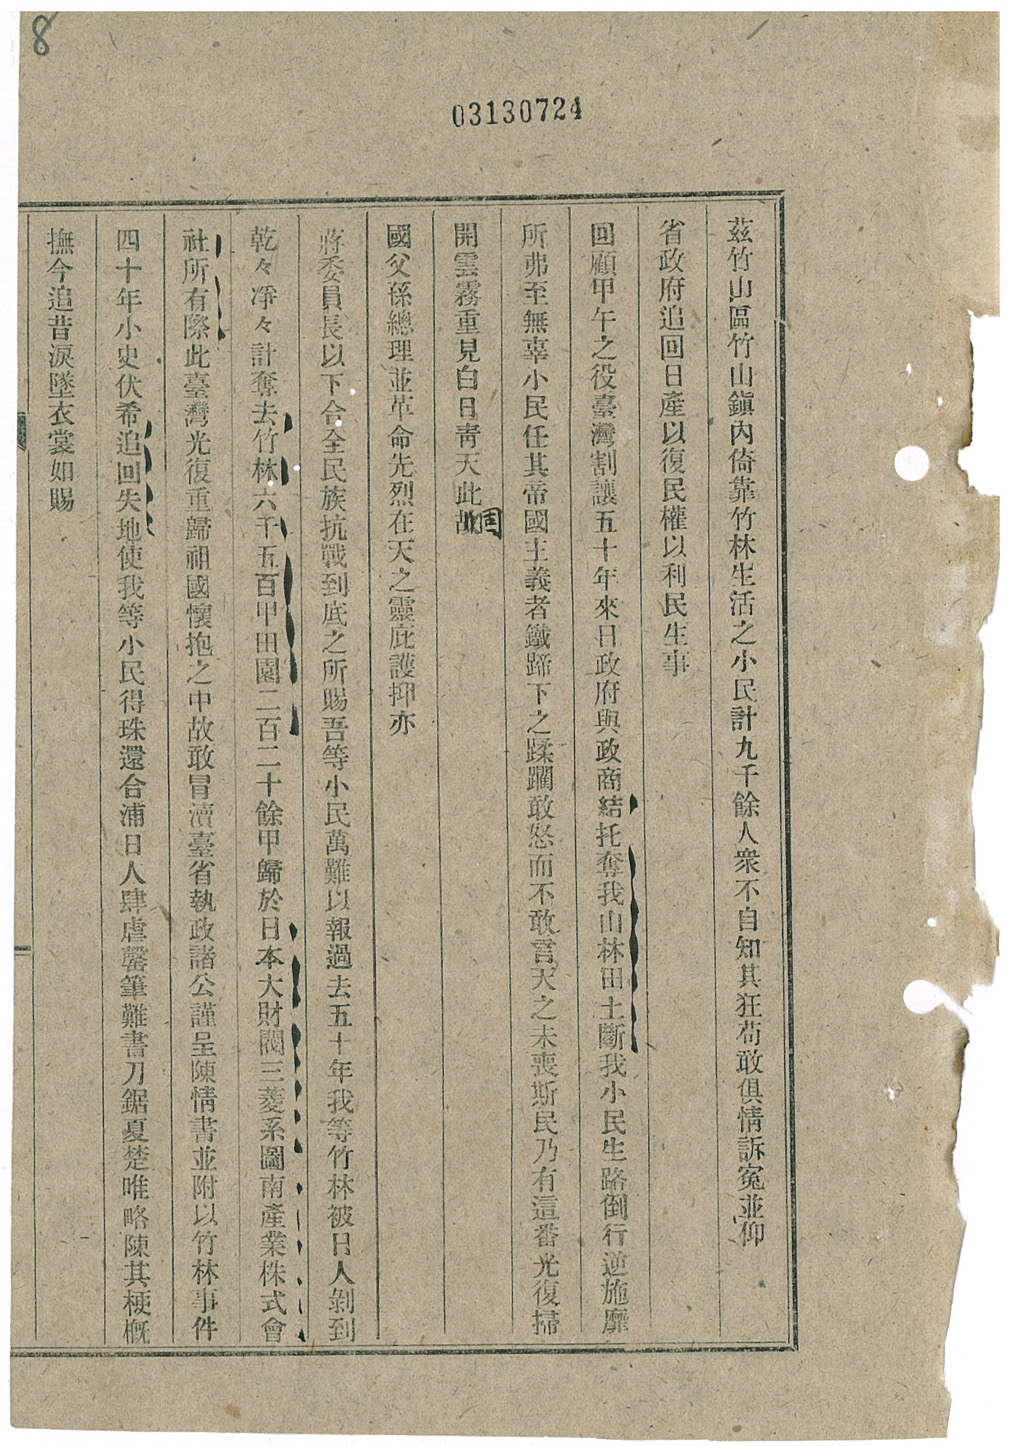 8
03130724
茲竹山區竹山鎭內倚靠竹林生活之小民計九千餘人衆不自知其狂苟敢俱情訴寃並仰
省政府追回日產以復民權以利民生事
回顧甲午之役臺灣割讓五十年來日政府與政商結托奪我山林田土斷我小民生路倒行逆施靡
所弗至無辜小民任其帝國主義者鐵蹄下之蹂躙敢怒而不敢言天之未喪斯民乃有這番光復掃
開雲霧重見白日靑天此固
國父孫總理並革命先烈在天之靈庇護抑亦
蔣委員長以下合全民族抗戰到底之所賜吾等小民萬難以報過去五十年我等竹林被日人剝到
乾々淨々計奪去竹林六千五百甲田園二百二十餘甲歸於日本大財閥三菱系圖南產業株式會
社所有際此臺灣光復重歸祖國懷抱之中故敢冒瀆臺省執政諸公謹呈陳情書並附以竹林事件
四十年小史伏希追回失地使我等小民得珠還合浦日人肆虐罄筆難書刀鋸夏楚唯略陳其梗槪
撫今追昔淚墜衣裳如賜